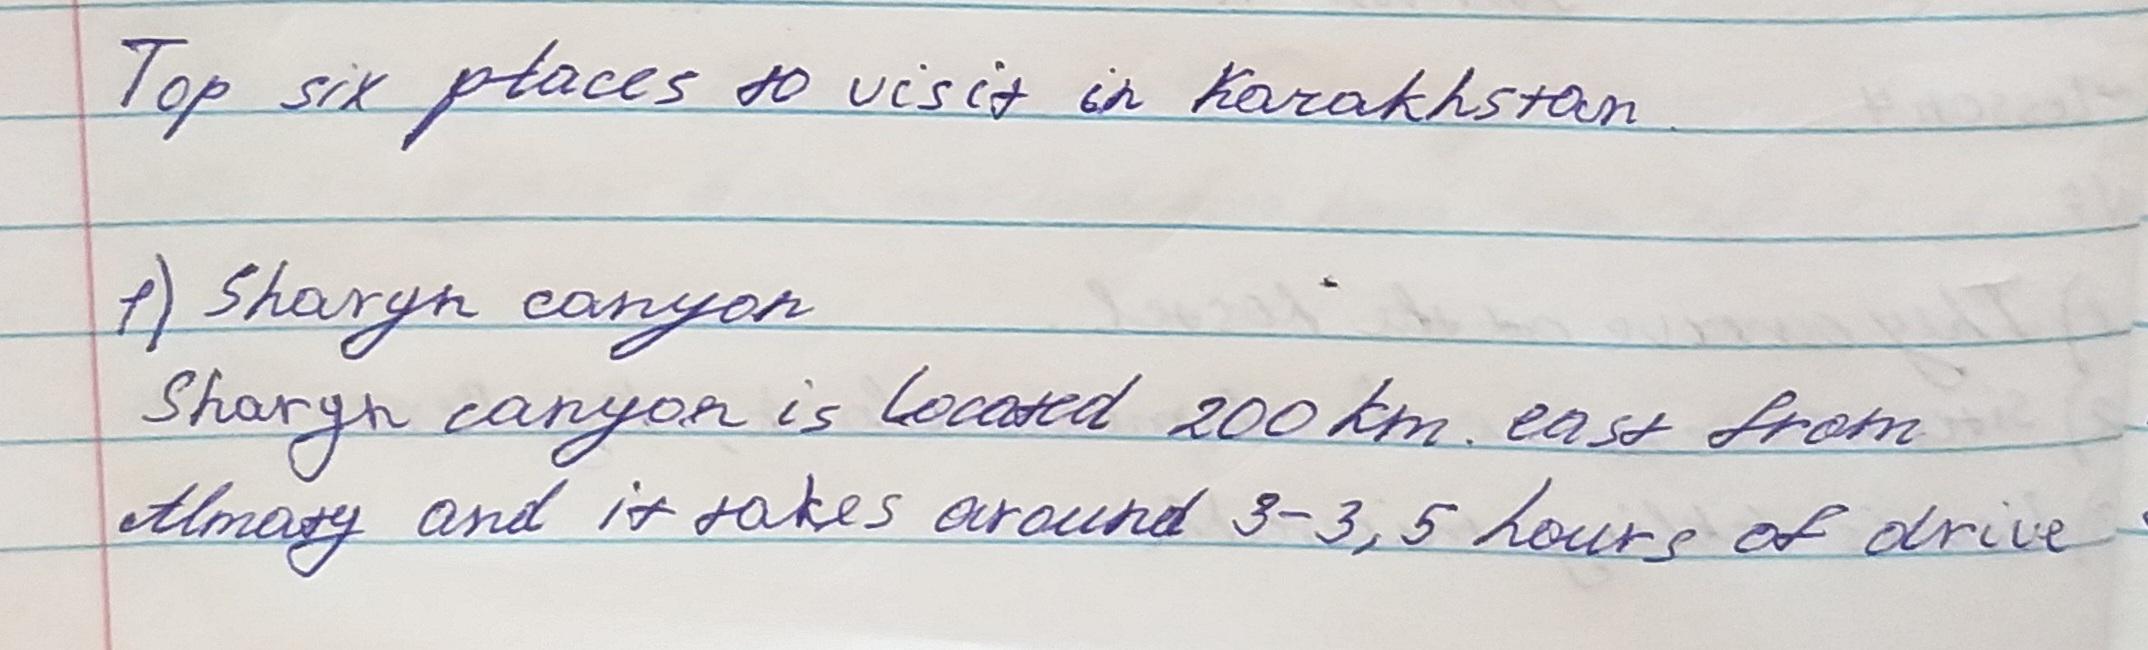 Top six places to visit in Kazakhstan.
1) Sharyn canyon
Sharyn canyon is located 200 km. east from
Almaty and it takes around 3-3,5 hours of drive